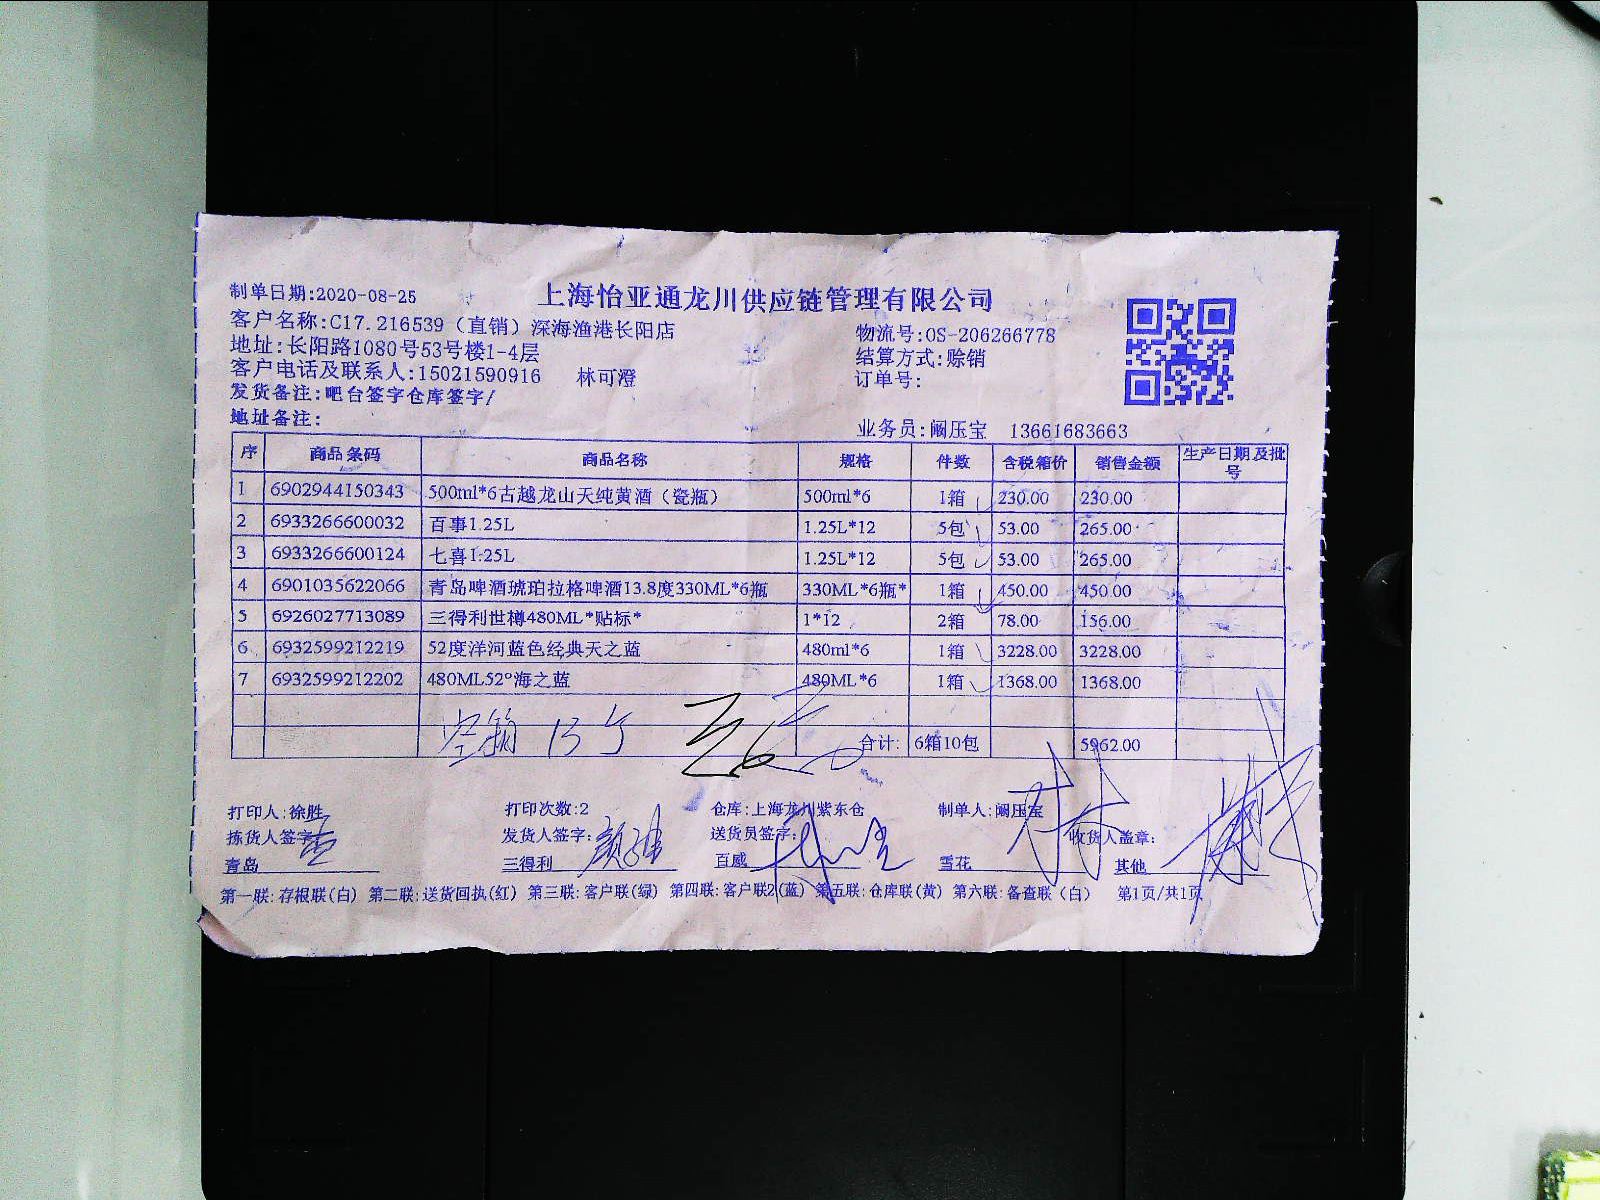 上海怡亚通龙川供应链管理有限公司
制单日期:2020-08-25
客户名称:C17.216539（直销）深海渔港长阳店 物流号:OS-206266778
地址:长阳路1080号53号楼1-4层 结算方式:赊销
客户电话及联系人:15021590916 林可澄 订单号:
发货备注:吧台签字仓库签字/
地址备注: 业务员:阚压宝 13661683663
序 商品条码 商品名称 规格 件数 含税箱价 销售金额 生产日期及批号
1 6902944150343 500ml*6古越龙山天纯黄酒（瓷瓶） 500ml*6 1箱 230.00 230.00
2 6933266600032 百事1.25L 1.25L*12 5包 53.00 265.00
3 6933266600124 七喜1.25L 1.25L*12 5包 53.00 265.00
4 6901035622066 青岛啤酒琥珀拉格啤酒13.8度330ML*6瓶 330ML*6瓶* 1箱 450.00 450.00
5 6926027713089 三得利世樽480ML*贴标* 1*12 2箱 78.00 156.00
6 6932599212219 52度洋河蓝色经典天之蓝 480ml*6 1箱 3228.00 3228.00
7 6932599212202 480ML52°海之蓝 480ML*6 1箱 1368.00 1368.00
空箱 13个
合计: 6箱10包 5962.00
打印人:徐胜 打印次数:2 仓库:上海龙川紫东仓 制单人:阚压宝
拣货人签字: 发货人签字: 送货员签字: 收货人盖章:
青岛 三得利 百威 雪花 其他
第一联:存根联(白) 第二联:送货回执(红) 第三联:客户联(绿) 第四联:客户联2(蓝) 第五联:仓库联(黄) 第六联:备查联（白） 第1页/共1页